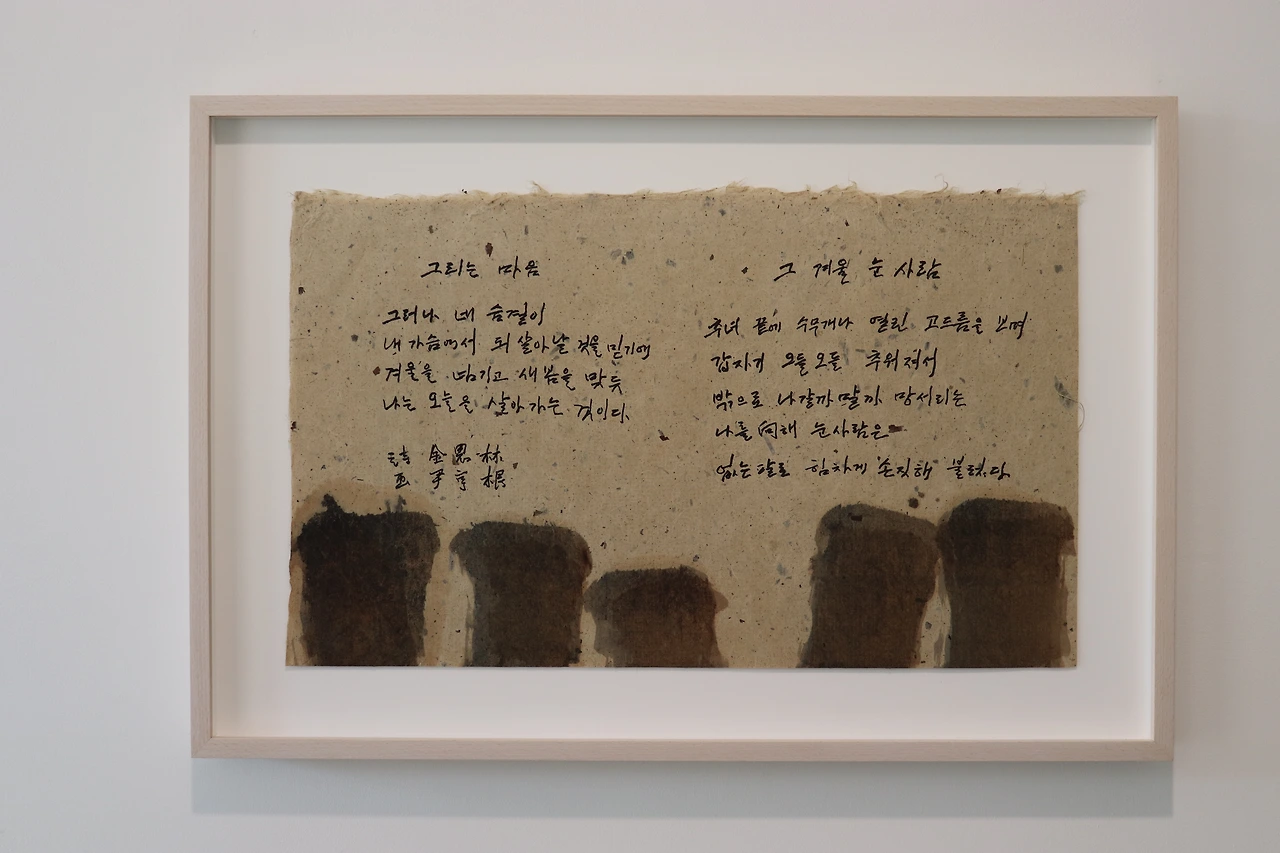 그리는 마음
그러나 네 숨결이
내 가슴에서 되살아날 것을 믿기에
겨울을 남기고 새봄을 맞듯
나는 오늘을 살아가는 것이다.
詩 金思林
画 尹亨根
그 겨울 눈사람
추녀 끝에 수무개나 열린 고드름을 보며
갑자기 오들오들 추워져서
밖으로 나갈까 말까 망서리는
나를 向해 눈사람은
없는 팔로 힘차게 손짓해 불렀다.